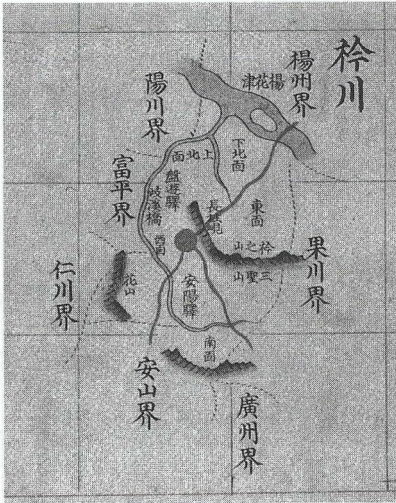 衿川
楊州界
楊花津
陽川界
下北面
上北面
富平界
盤遊驛
岐灘橋
東面
衿之山
三聖山
果川界
西面
仁川界
花山
安陽驛
南面
安山界
廣州界